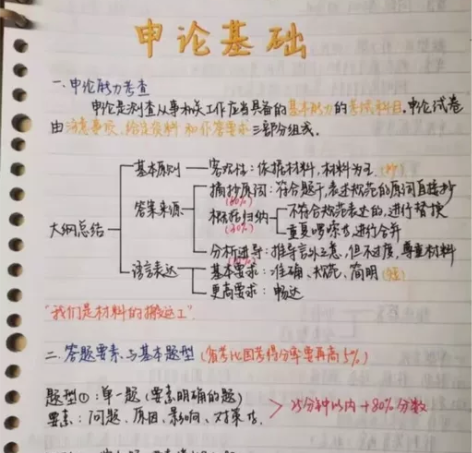 申论基础
一.申论能力考查
申论是测查从事机关工作应当具备的基本能力的考试科目.申论试卷
由注意事项、给定资料和作答要求三部分组成。
大纲总结
基本原则 — 客观性:依据材料,材料为王
答案来源
摘抄原词:符合题干,表述规范的原词直接抄
概括归纳
不符合规范表达的,进行替换
重复啰嗦的,进行合并
分析推导:推导言外之意,但不过度,尊重材料
语言表达
基本要求:准确、规范、简明
更高要求:畅达
"我们是材料的搬运工"
二.答题要素与基本题型(省考比国考得分率要再高5%)
题型①:单一题(要素明确的题)
要素:问题、原因、影响、对策等.
> 25分钟以内→80%分数